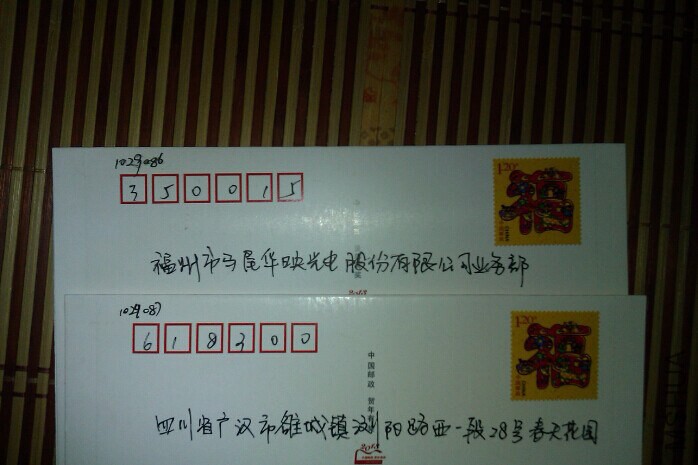 1029086
350015
1.20元
福州市马尾华映光电股份有限公司业务部
1029087
618300
1.20元
中国邮政 贺年有
四川省广汉市雒城镇浏阳路西一段28号春天花园